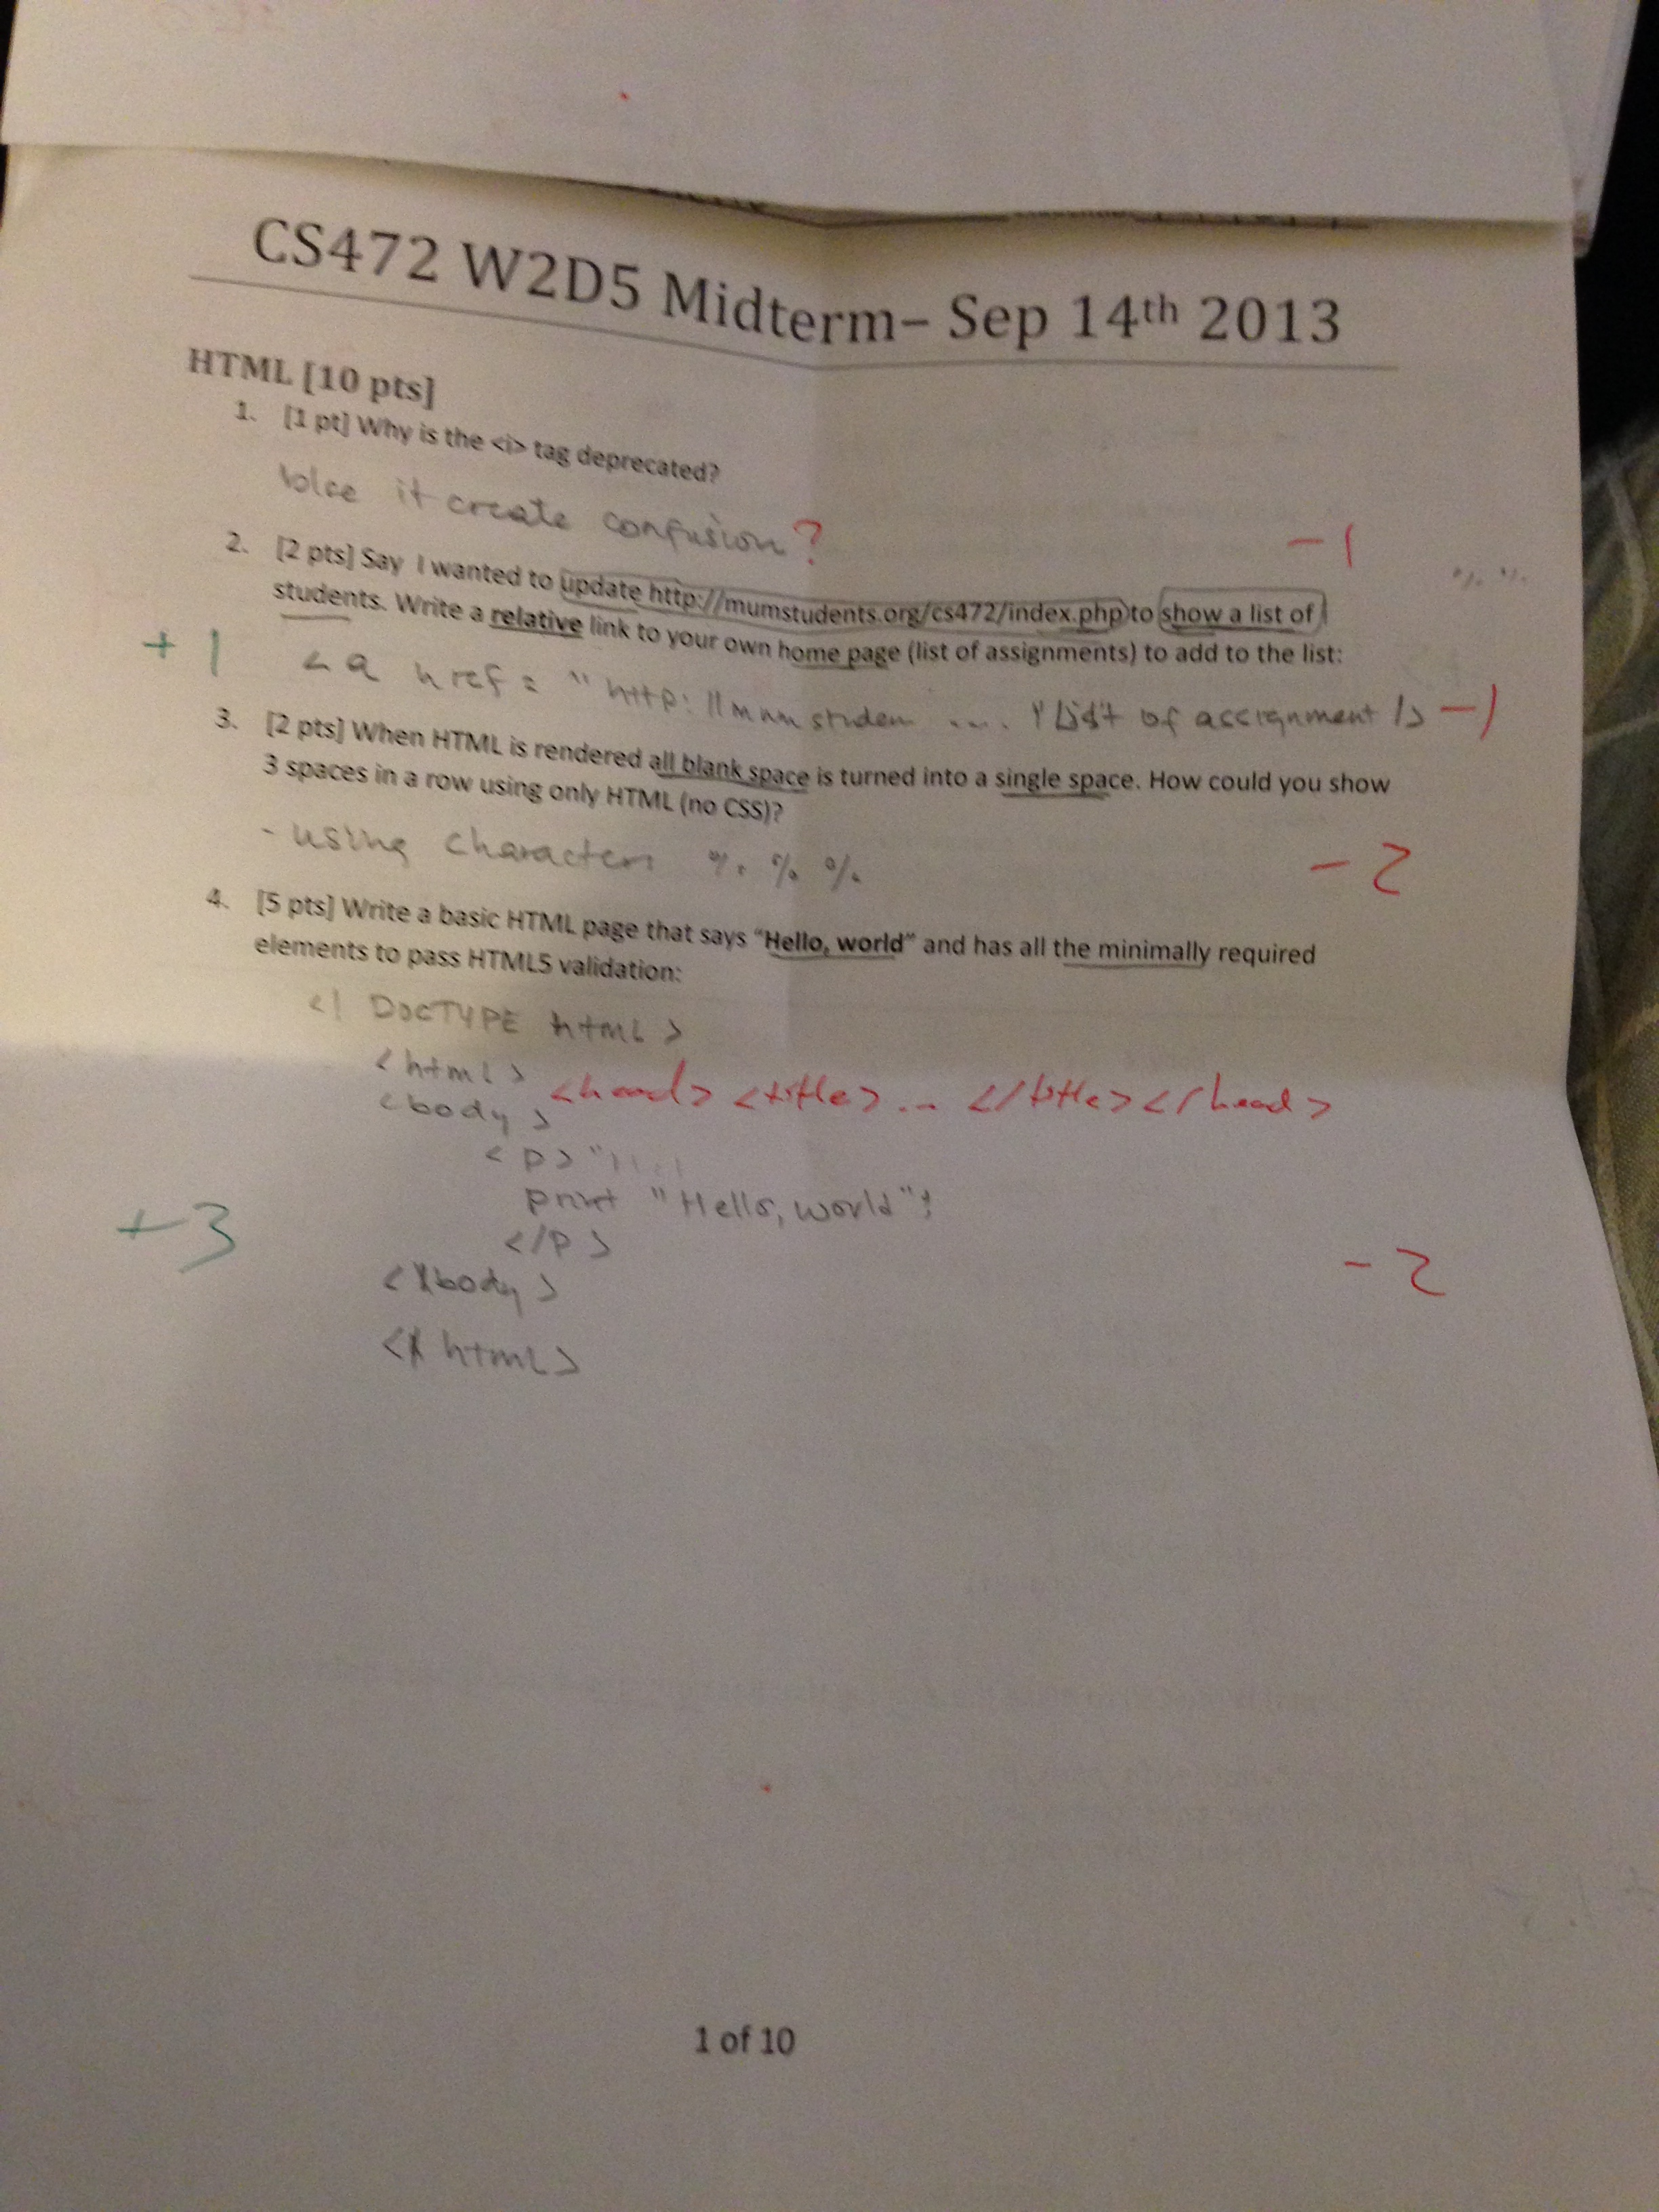 CS472 W2D5 Midterm– Sep 14th 2013
HTML [10 pts]
1. [1 pt] Why is the <i> tag deprecated?
it create confusion ?
-1
2. [2 pts] Say I wanted to update http://mumstudents.org/cs472/index.php to show a list of
students. Write a relative link to your own home page (list of assignments) to add to the list:
+1
< a href = "http://mumstuden .... " List of assignment /> -1
3. [2 pts] When HTML is rendered all blank space is turned into a single space. How could you show
3 spaces in a row using only HTML (no CSS)?
- using characters % % %
-2
4. [5 pts] Write a basic HTML page that says "Hello, world" and has all the minimally required
elements to pass HTML5 validation:
<! DOCTYPE html >
<html> <head> <title> ... </title> </head>
<body>
<p>
print "Hello, world";
</p>
+3
-2
</body>
</html>
1 of 10